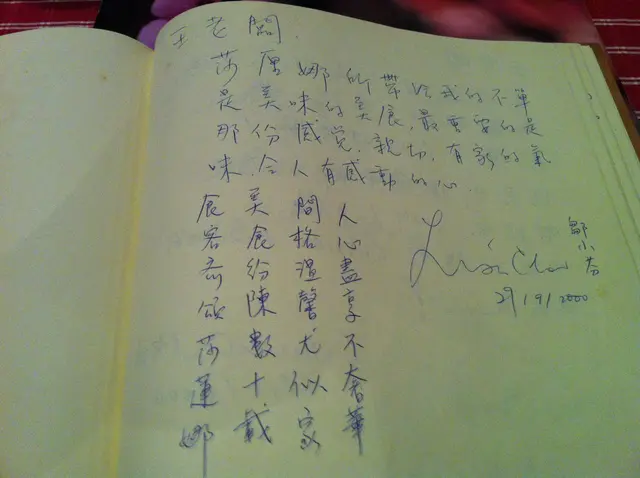 王老闆
莎厘娜所帶给我的不單
是美味的美食,最重要的是
那份感觉,親切,有家的氣
味,令人有感動的心.
食客齊頌莎蓮娜
美食紛陳數十載
間格溫馨尤似家
人心盡享不奢華
鄒小芬
29/9/2000